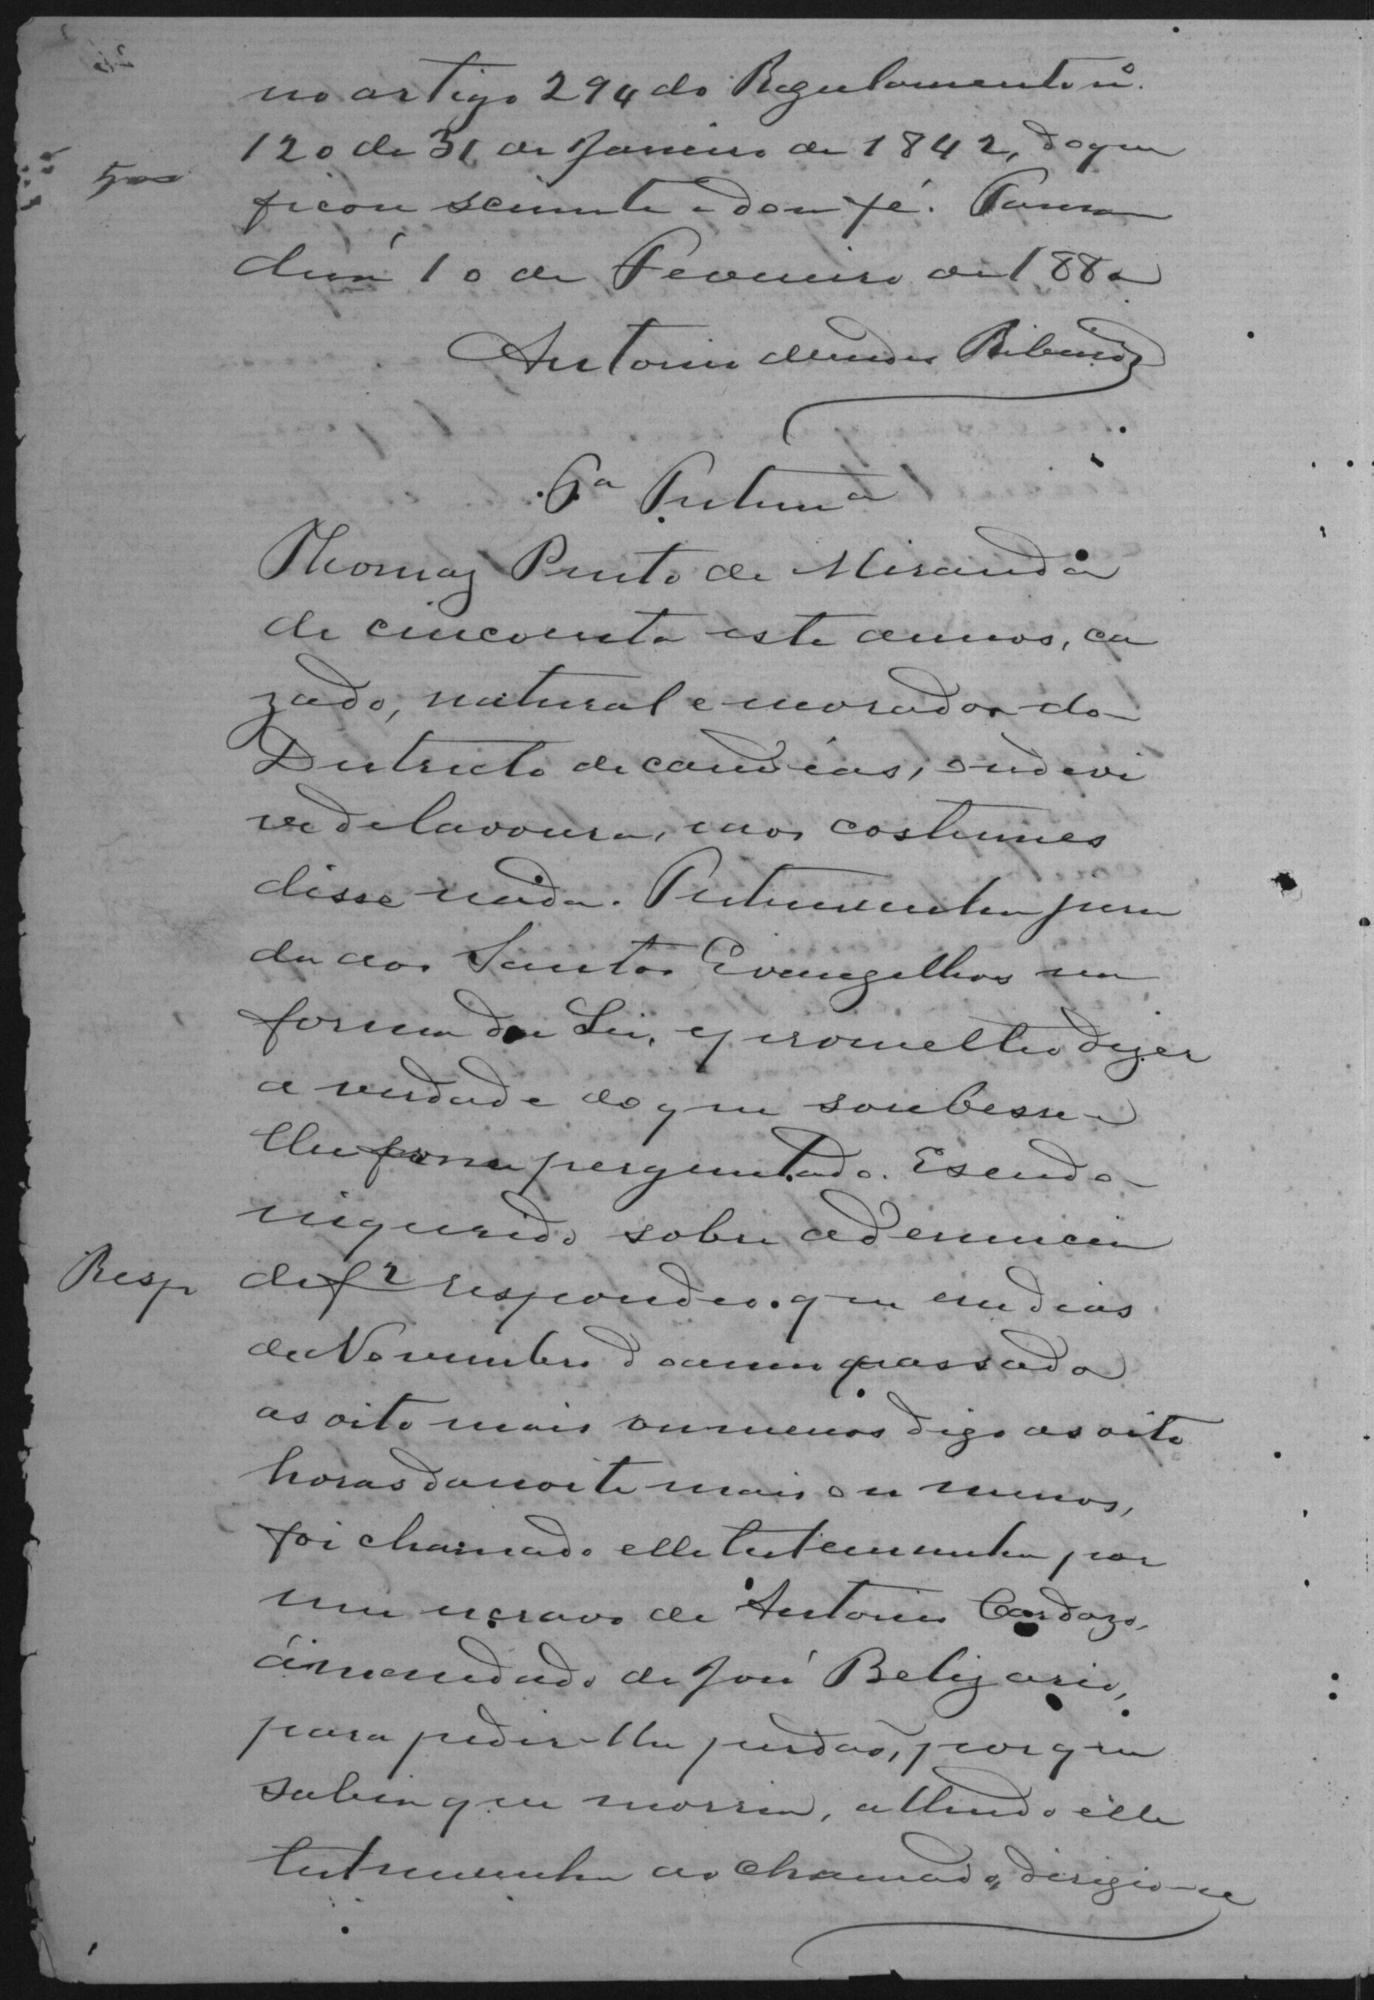 no artigo 294 do Regulamento nº
120 de 31 de Janeiro de 1842, do que
ficou sciente e dou fé. Taman
duá 10 de Fevereiro de 1880
Antonio Mendes Ribeiro
6ª Testemª
Thomaz Pinto de Miranda
de cincoenta esete annos, ca
zado, natural e morador do
Districto de candéas, onde vi
ve de lavoura, e aos costumes
disse nada. Testemunha jura
da aos Santos Evangelhos na
forma da Lei, e prometteo dizer
a verdade do que soubesse e
lhe fosse perguntado. E sendo
inquerido sobre a denuncia
Resp de f 2 respondeo que em dias
de Novembro do anno passado
as oito mais ou menos digo as oito
horas da noite mais ou menos,
foi chamado elle testemunha por
um escravo de Antonio Cardozo,
á mandado de José Belizario,
para pedir-lhe perdaõ, porque
sabia que morria, attendo elle
testemunha ao chamado, dirigio-se